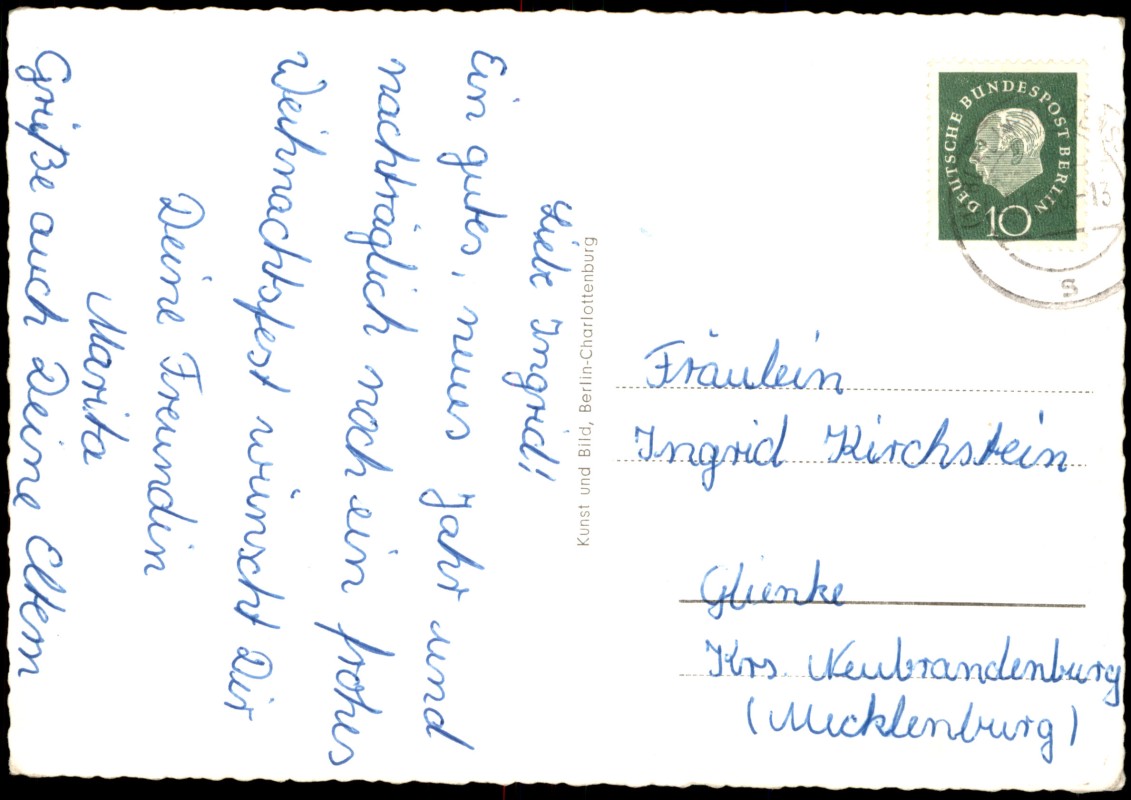 Liebe Ingrid!
Ein gutes, neues Jahr und
nachträglich noch ein frohes
Weihnachtsfest wünscht Dir
Deine Freundin
Marita
Grüße auch Deine Eltern
Kunst und Bild, Berlin-Charlottenburg
DEUTSCHE BUNDESPOST BERLIN
10
-13
s
Fräulein
Ingrid Kirchstein
Glienke
Krs. Neubrandenburg
(Mecklenburg)